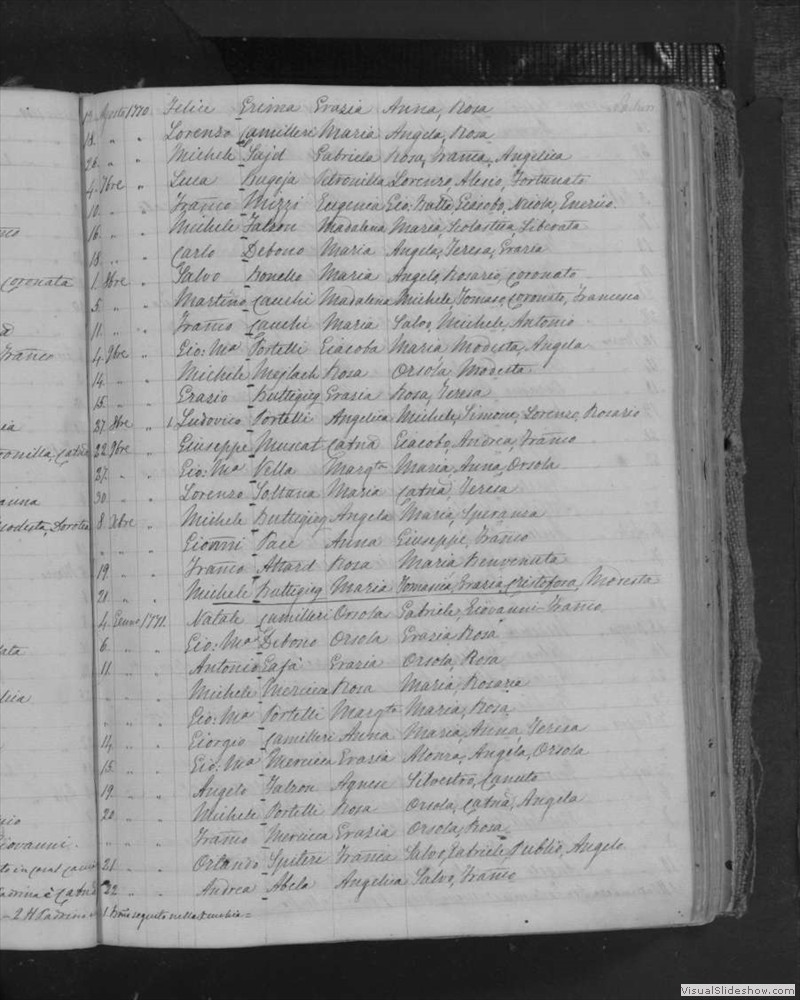 12 Agsto 1770. Felice Erima Grazia Anna, Rosa
18. " " Lorenzo Camilleri Maria Angela, Rosa
26. " " Michele Sajd Gabriela Rosa, Franca, Angelica
4. 7bre " Luca Bugeja Petronilla Lorenzo, Alesio, Fortunato
10. " " Franco Mizzi Eugenia Gio: Batta, Giacobo, Nicola, Enerico
16. " " Michele Falzon Madalena Maria, Scolastica, Liberata
18. " " Carlo Debono Maria Angela, Teresa, Grazia
Coronata 1. 8bre " Salvo Bonello Maria Angelo, Rosario, Coronato
5. " " Martino Cauchi Madalena Michele, Tomaso, Coronato, Francesco
11. " " Franco Cauchi Maria Salvo, Michele, Antonio
Franco 4. 9bre " Gio: Ma Portelli Giacoba Maria, Modesta, Angela
14. " " Michele Mejlach Rosa Orsola, Modesta
15. " " Grazio Buttigieg Grazia Rosa, Teresa
27. 8bre " 1. Ludovico Portelli Angelica Michele, Simone, Lorenzo, Rosario
22. 9bre " Giuseppe Muscat Catna Giacobo, Andrea, Franco
27. " " Gio: Ma Vella Margta Maria, Anna, Orsola
30. " " Lorenzo Soltana Maria Catna, Teresa
Modesta, Dorotea 8. Xbre " Michele Buttigieg Angela Maria, Speranza
" " " Gioanni Pace Anna Giuseppe, Franco
19. " " Franco Attard Rosa Maria Benvenuta
21. " " Michele Buttigieg Maria Tomasia, Grazia, Cristofora, Modesta
4. Genno 1771. Natale Camilleri Orsola Gabriele, Giovanni-Franco
6. " " Gio: Ma Debono Orsola Grazia Rosa
11. " " Antonio Safà Grazia Orsola, Rosa
" " " Michele Mercieca Rosa Maria, Rosaria
" " " Gio: Ma Portelli Margta Maria, Rosa
14. " " Giorgio Camilleri Anna Maria, Anna, Teresa
15. " " Gio: Ma Mercieca Grazia Alonza, Angela, Orsola
19. " " Angelo Falzon Agnese Silvestro, Canuto
20. " " Michele Portelli Rosa Orsola, Catna, Angela
Giovanni. " " " Franco Mercieca Grazia Orsola, Rosa
21. " " Orlando Spiteri Franca Salvo, Gabriele, Publio, Angelo
22. " " Andrea Abela Angelica Salvo, Franco